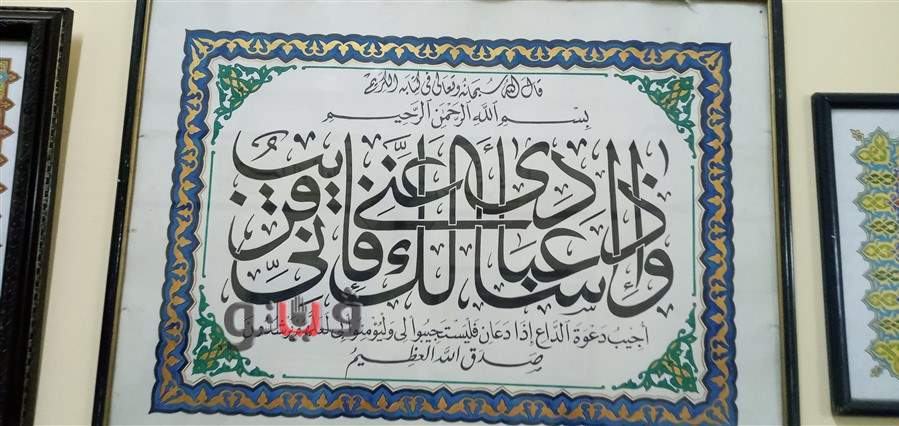 قال الله سبحانه وتعالى في كتابه الكريم
بِسْمِ اللَّهِ الرَّحْمَنِ الرَّحِيمِ
وَإِذَا سَأَلَكَ عِبَادِي عَنِّي فَإِنِّي قَرِيبٌ
أجيب دعوة الداع إذا دعان فليستجيبوا لي وليؤمنوا بي لعلهم يرشدون
صدق الله العظيم
فيتو